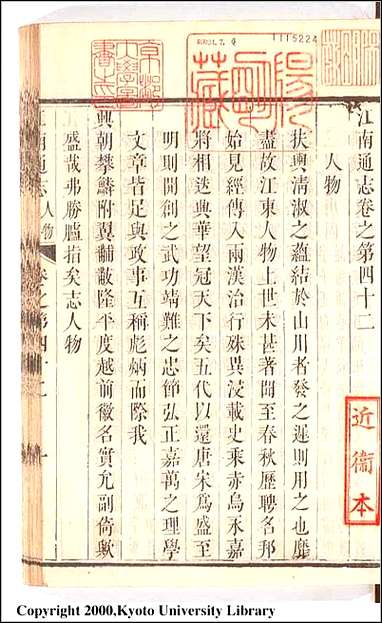 江南通志卷之第四十二
人物
扶輿清淑之蘊結於山川者發之遲則用之也靡
盡故江東人物上世未甚著聞至春秋歷聘名邦
始見經傳入兩漢治行殊異浸載史乘赤烏永嘉
將相迭興華望冠天下矣五代以還唐宋爲盛至
明則開創之武功靖難之忠節弘正嘉萬之理學
文章皆足與政事互稱彪炳而際我
興朝攀鱗附翼黼黻隆平度越前徽名實允副倚歟
盛哉弗勝臚指矣志人物
江南通志 人物 卷之第四十二 一
近衞本
陽明藏
1115224
Copyright 2000,Kyoto University Library